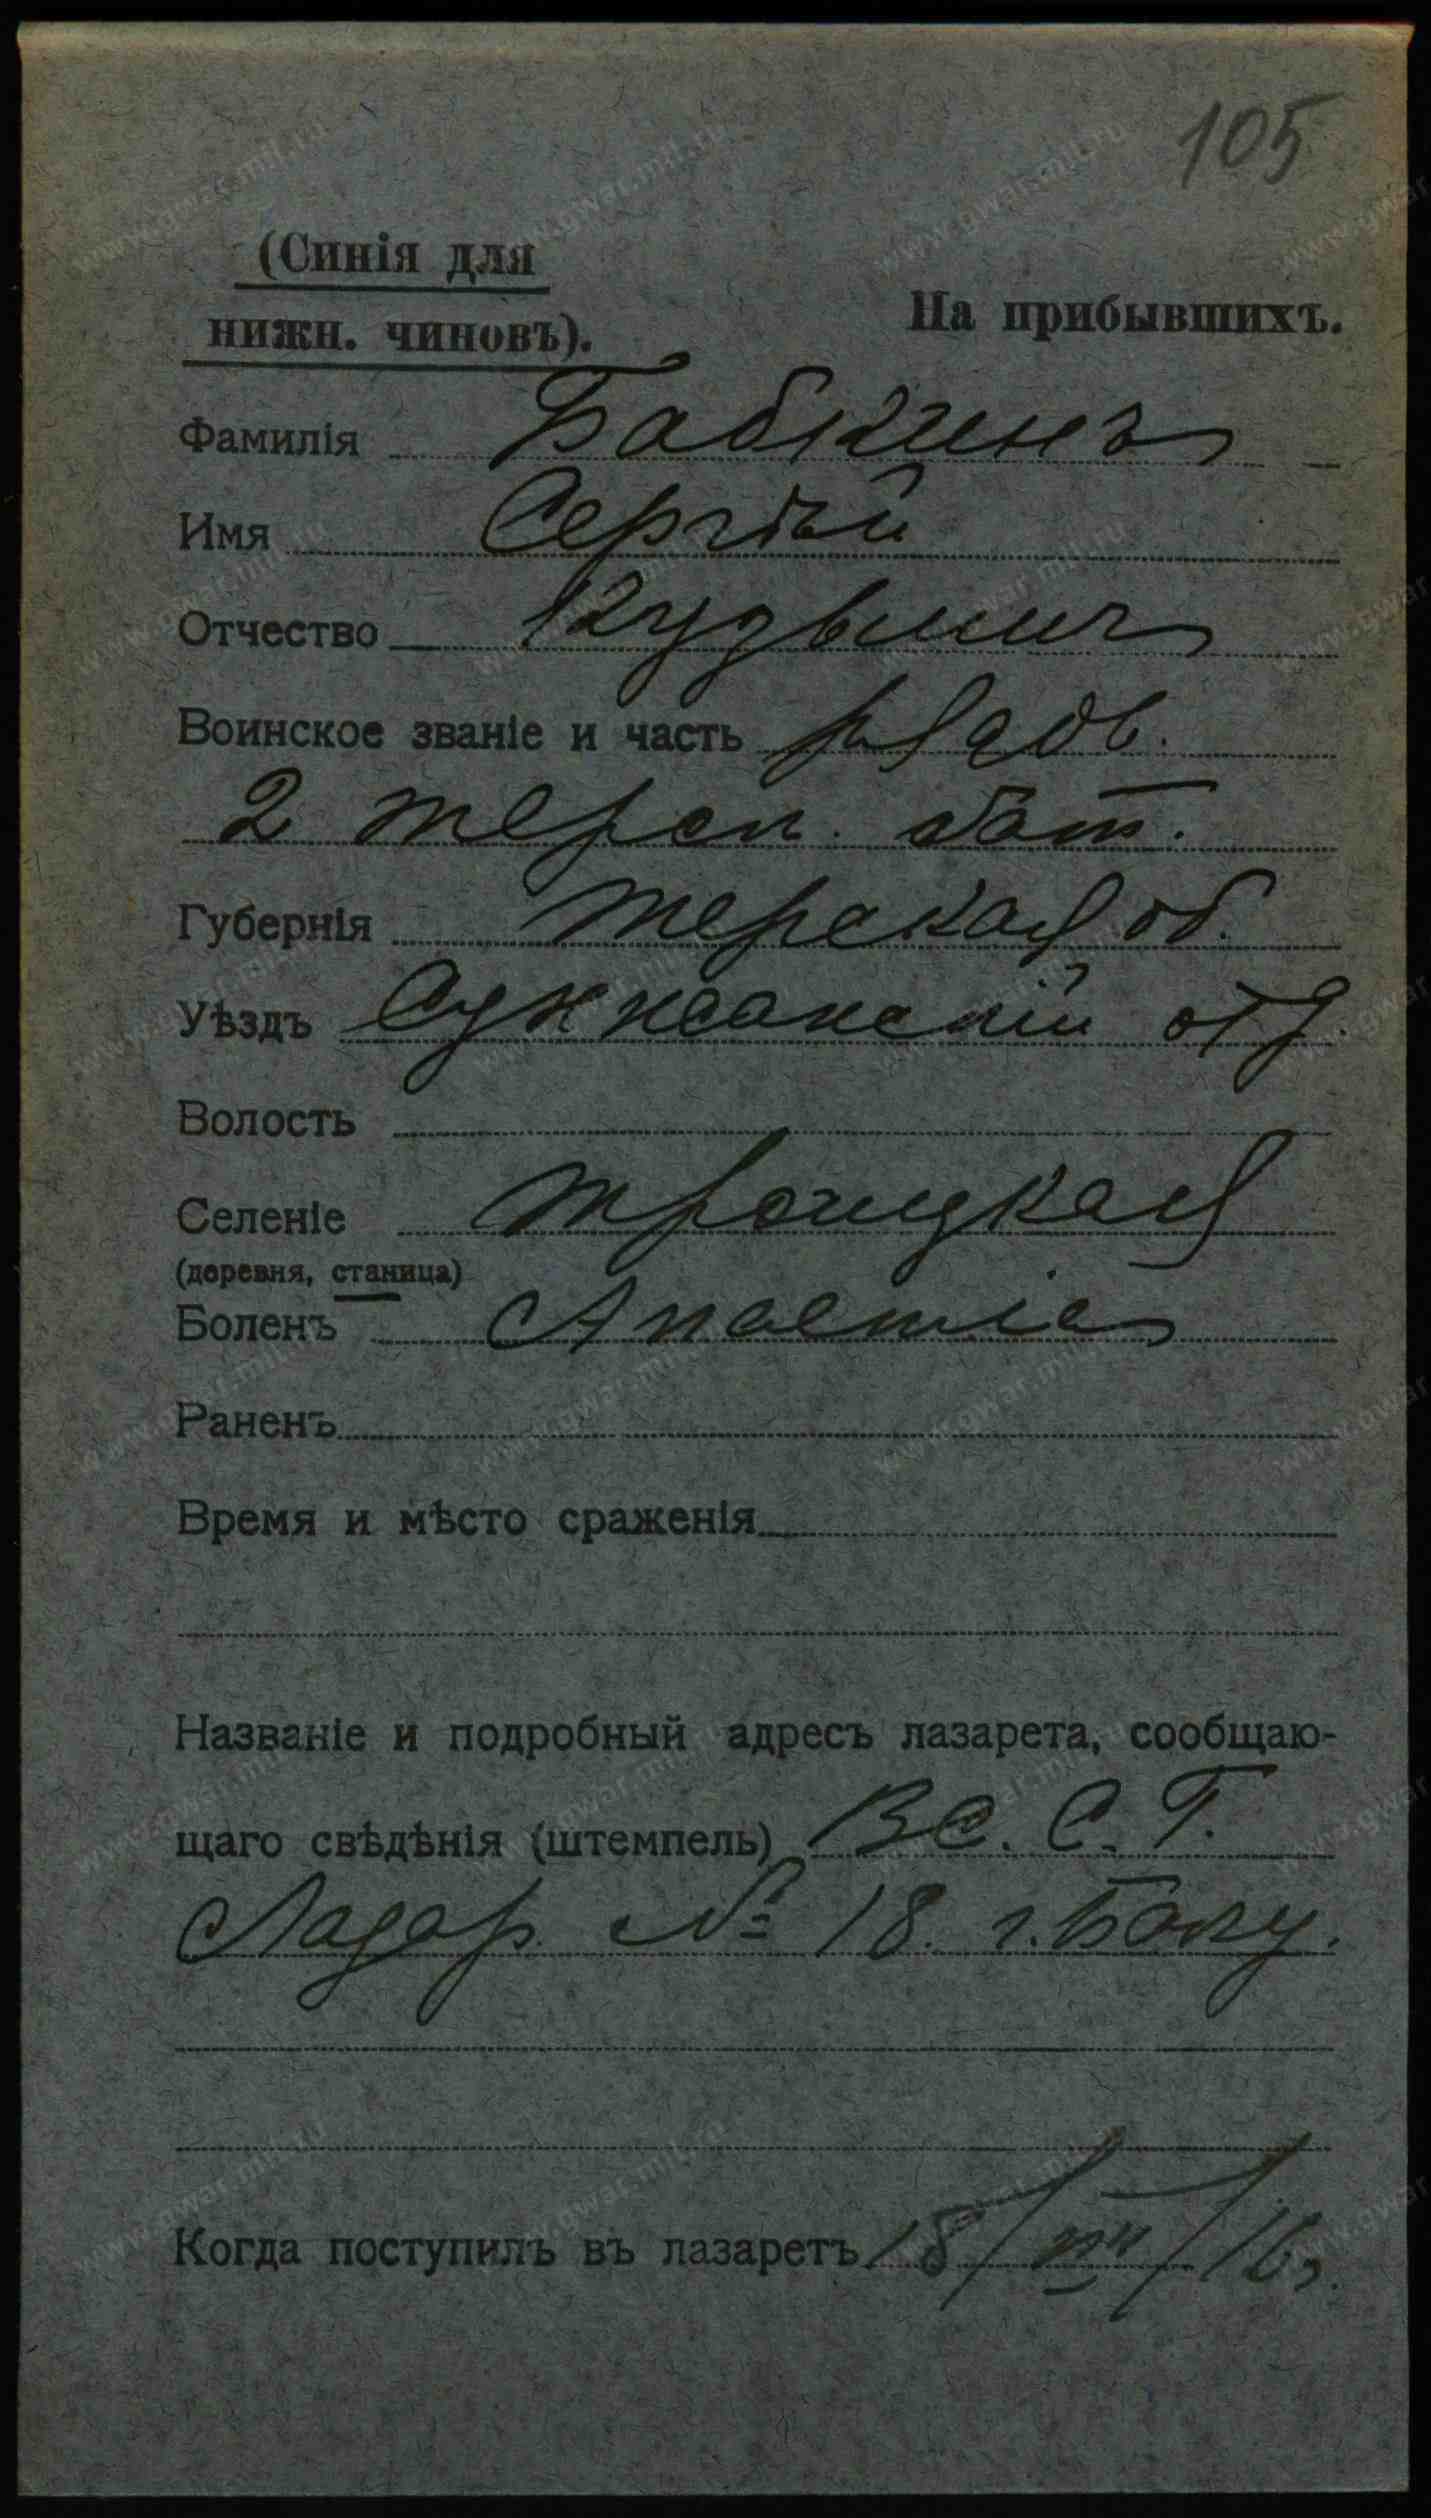 105
(Синія для
нижн. чиновъ).
На прибывшихъ.
Фамилія Бабкинъ
Имя Сергѣй
Отчество Кузьмич
Воинское званіе и часть рядов.
2 терск. бат.
Губернія Терская об.
Уѣздъ Сунженскій отд.
Волость
Селеніе Троицкая
(деревня, станица)
Боленъ Anaemia
Раненъ
Время и мѣсто сраженія
Названіе и подробный адресъ лазарета, сообщаю-
щаго свѣдѣнія (штемпель) Вс. С. Г.
Лазар. № 18. г. Баку.
Когда поступилъ въ лазаретъ 18/VII/16 г.